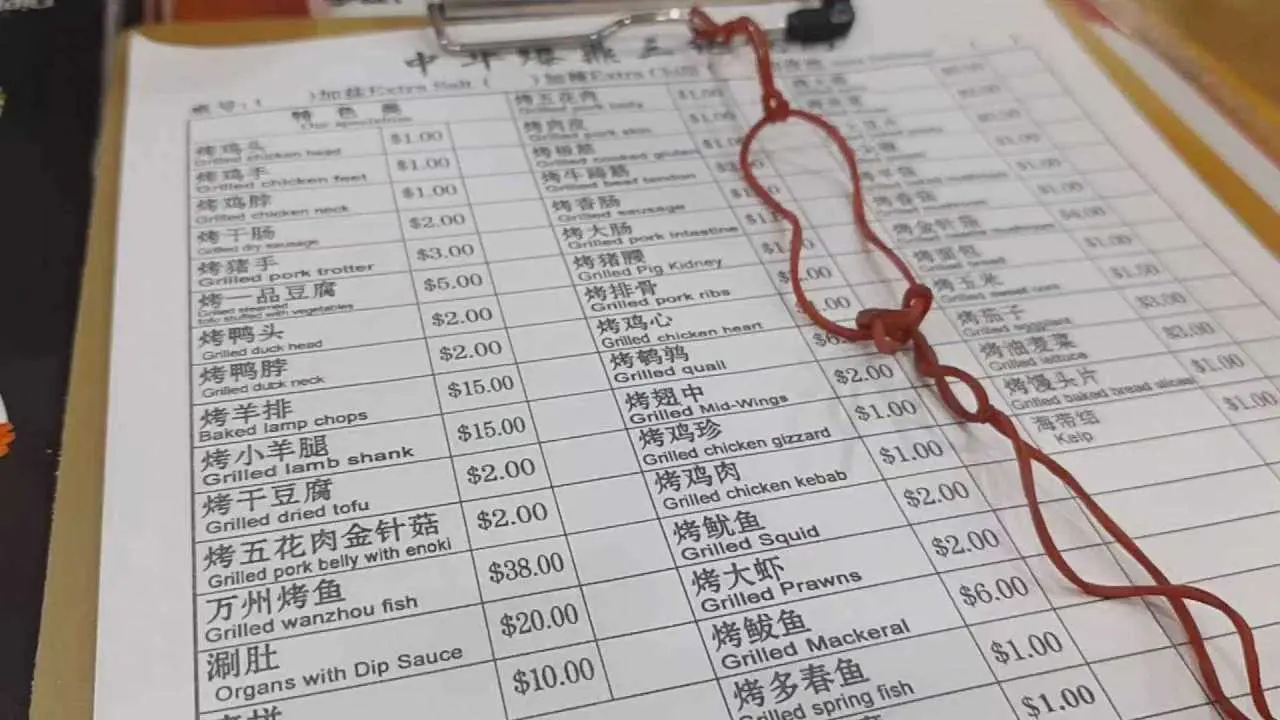 加盐Extra Salt (
)加辣Extra Chilli (
特色菜
Our specialities
烤鸡头 $1.00
Grilled chicken head
烤鸡手 $1.00
Grilled chicken feet
烤鸡脖 $1.00
Grilled chicken neck
烤干肠 $2.00
Grilled dry sausage
烤猪手 $3.00
Grilled pork trotter
烤一品豆腐 $5.00
Grilled steamed
tofu stuffed with vegetables
烤鸭头 $2.00
Grilled duck head
烤鸭脖 $2.00
Grilled duck neck
烤羊排 $15.00
Baked lamp chops
烤小羊腿 $15.00
Grilled lamb shank
烤干豆腐 $2.00
Grilled dried tofu
烤五花肉金针菇 $2.00
Grilled pork belly with enoki
万州烤鱼 $38.00
Grilled wanzhou fish
涮肚 $20.00
Organs with Dip Sauce
$10.00
烤五花肉 $1.00
Grilled pork belly
烤肉皮 $1.00
Grilled pork skin
烤板筋
Grilled cooked gluten
烤牛蹄筋
Grilled beef tendon
烤香肠
Grilled sausage
烤大肠
Grilled pork intestine
烤猪腰
Grilled Pig Kidney
烤排骨
Grilled pork ribs
烤鸡心
Grilled chicken heart
烤鹌鹑
Grilled quail
烤翅中 $2.00
Grilled Mid-Wings
烤鸡珍 $1.00
Grilled chicken gizzard
烤鸡肉 $1.00
Grilled chicken kebab
烤鱿鱼 $2.00
Grilled Squid
烤大虾 $2.00
Grilled Prawns
烤鲅鱼 $6.00
Grilled Mackeral
烤多春鱼 $1.00
Grilled spring fish
$1.00
烤香菇
烤金针菇
烤面包
烤玉米
烤茄子 $3.00
Grilled eggplant
烤油麦菜 $3.00
Grilled lettuce
烤馒头片 $1.00
Grilled baked bread slices
海带结 $1.00
Kelp